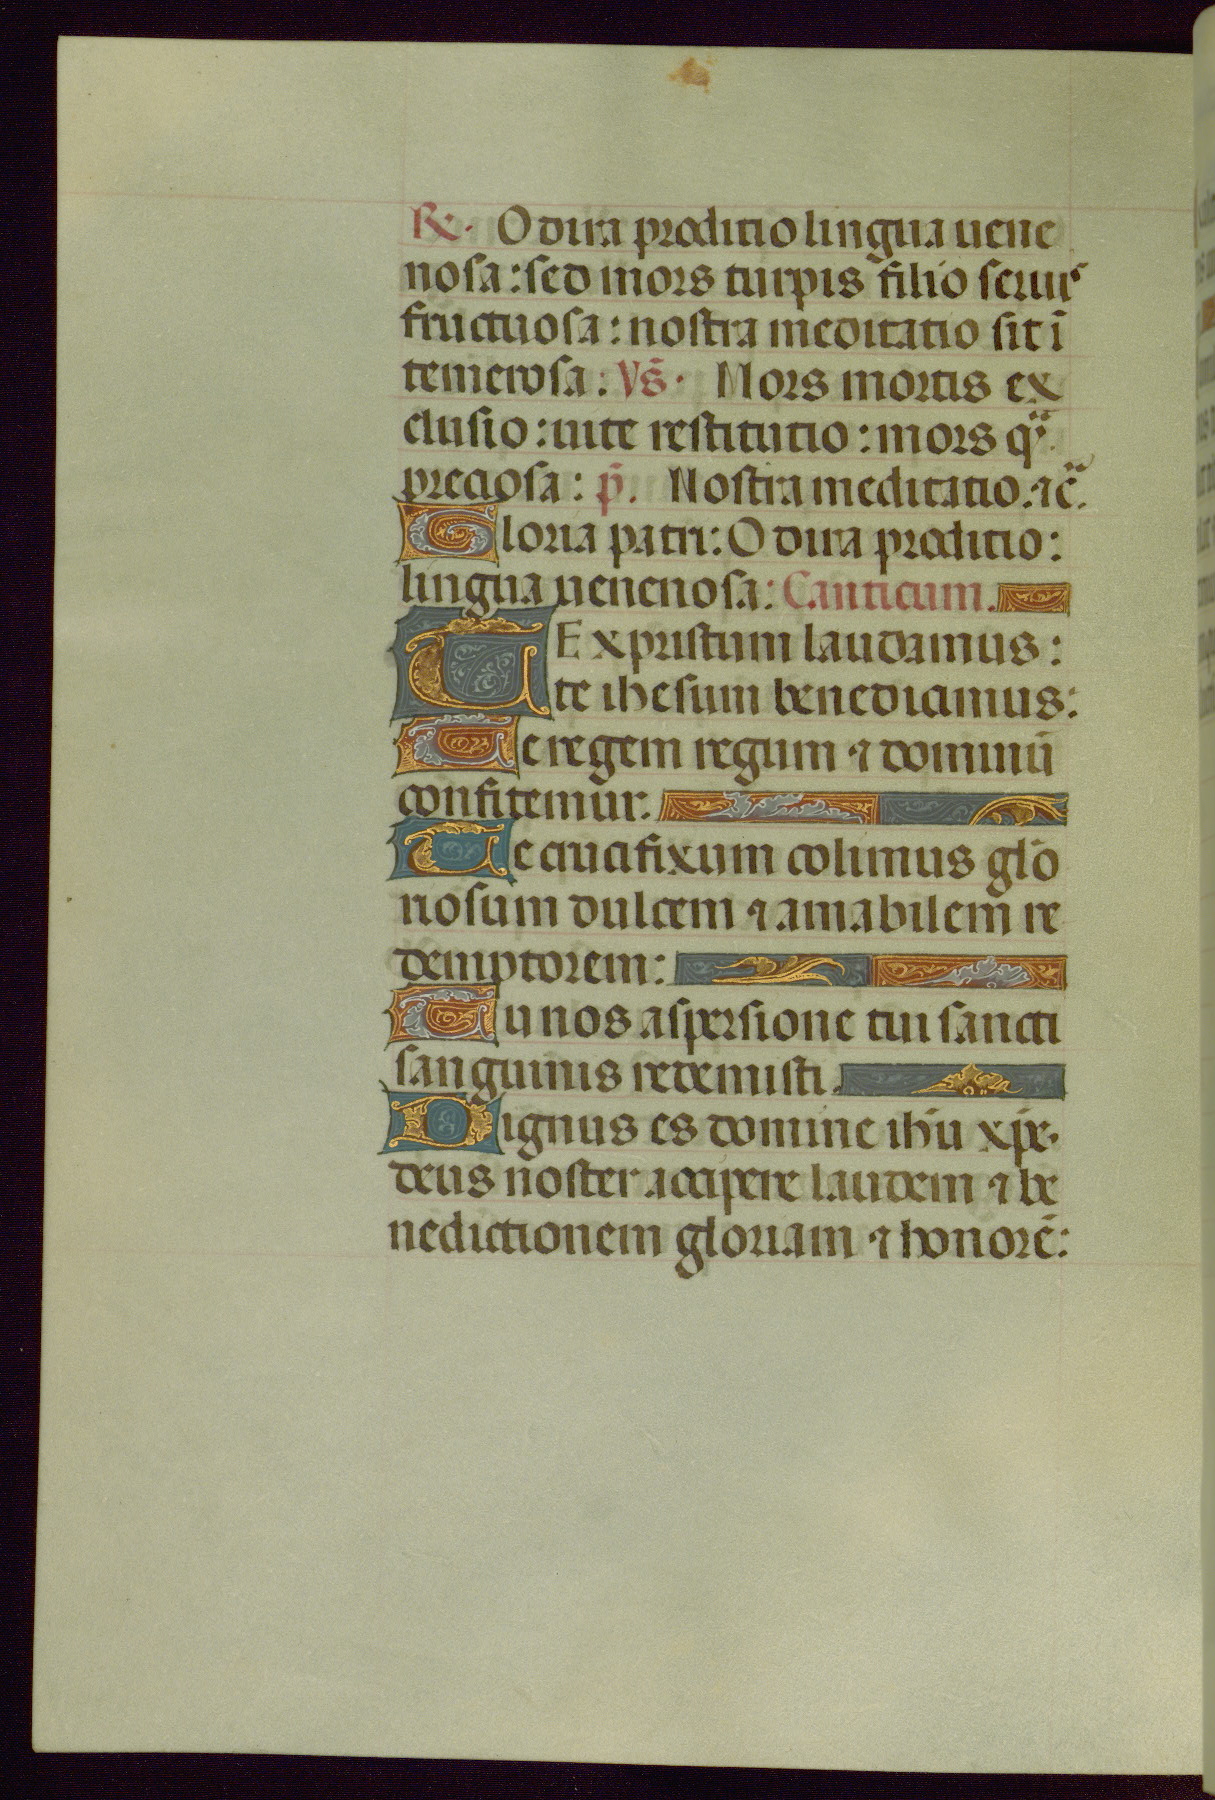 R. O dira proditio lingua uene
nosa: sed mors turpis filio seruis
fructuosa: nostra meditatio sit ī
temerosa: Vs̄. Mors mortis ex
clusio: uite restitutio: mors qͣ
preciosa: p̄. Nostra meditatio. ⁊ cͣ.
Gloria patri: O dira proditio:
lingua uenenosa: Canticum.
TE xpristum laudamus:
te ihesum benedicimus:
Te regem regum ⁊ dominū
confitemur.
Te crucifixum colimus glo
riosum dulcem ⁊ amabilem re
demptorem:
Tu nos aspersione tui sancti
sanguinis redemisti.
Dignus es domine ihū xp̄e.
deus noster accipere laudem ⁊ be
nedictionem gloriam ⁊ honorē: